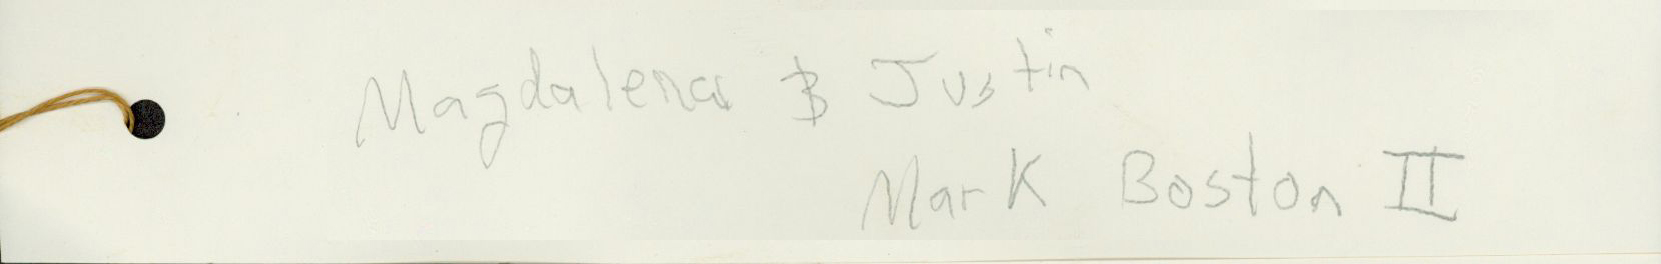 Magdalena & Justin
Mark Boston II